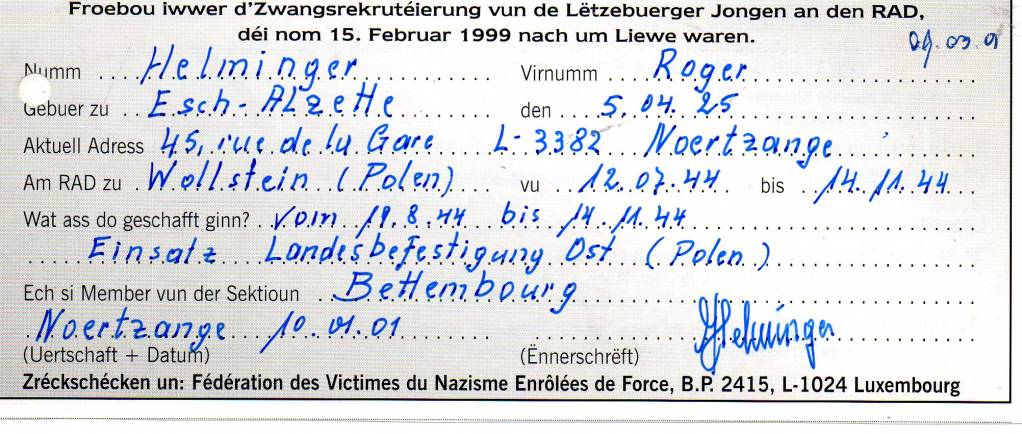 Froebou iwwer d'Zwangsrekrutéierung vun de Lëtzebuerger Jongen an den RAD,
déi nom 15. Februar 1999 nach um Liewe waren.
09.03.01
Numm Helminger Virnumm Roger
Gebuer zu Esch-Alzette den 5.04.25
Aktuell Adress 45, rue de la Gare L-3382 Noertzange
Am RAD zu Wollstein (Polen) vu 12.07.44 bis 14.11.44
Wat ass do geschafft ginn? Vom 19.8.44 bis 14.11.44
Einsatz Landesbefestigung Ost (Polen)
Ech si Member vun der Sektioun Bettembourg
Noertzange 10.01.01 Helminger
(Uertschaft + Datum) (Ënnerschrëft)
Zréckschécken un: Fédération des Victimes du Nazisme Enrôlées de Force, B.P. 2415, L-1024 Luxembourg